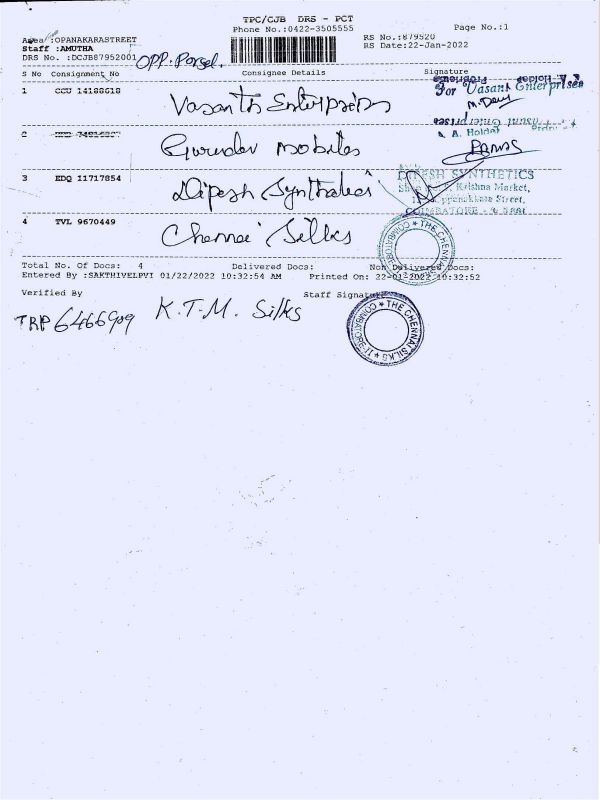 TPC/CJB DRS - PCT
Phone No.:0422-3505555 Page No.:1
Area :OPANAKARASTREET RS No.:879520
Staff :AMUTHA RS Date:22-Jan-2022
DRS No. :DCJB87952001 OPP. Porsel.
S No Consignment No Consignee Details Signature
1 CCU 14188618 Vasanth Enterprises For Vasant Enterprises
2 Gurudev mobiles A. Holder
3 EDQ 11717854 Dipesh Synthetics DIPESH SYNTHETICS
Krishna Market,
Street,
COIMBATORE -
4 TVL 9670449 Chennai Silks THE CHENNAI
Total No. Of Docs: 4 Delivered Docs: Non Delivered Docs:
Entered By :SAKTHIVELPVI 01/22/2022 10:32:54 AM Printed On: 22-01-2022 10:32:52
Verified By Staff Signature
TRP 6466909 K.T.M. Silks THE CHENNAI SILKS